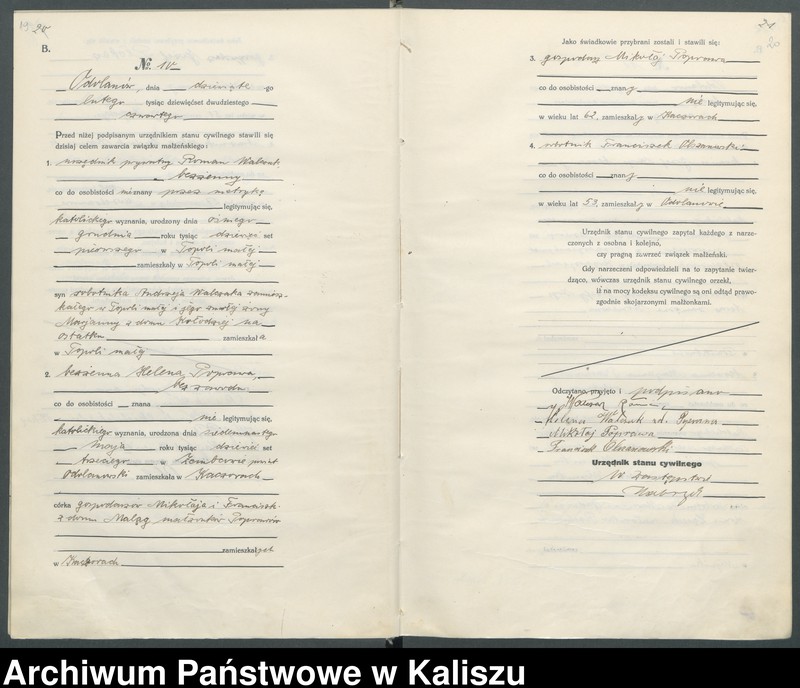 20
B.
№ 10
Odolanów, dnia dziesiąte go
lutego tysiąc dziewięćset dwudziestego
czwartego
Przed niżej podpisanym urzędnikiem stanu cywilnego stawili się
dzisiaj celem zawarcia związku małżeńskiego:
1. urzędnik prywatny Roman Walczak
bezżenny
co do osobistości nieznany przez metrykę
legitymując się,
katolickiego wyznania, urodzony dnia ósmego
grudnia roku tysiąc dziewięć set
pierwszego w Topoli małej
zamieszkały w Topoli małej
syn robotnika Andrzeja Walczaka zamiesz-
kałego w Topoli małej i jego zmarłej żony
Marjanny z domu Kołodziej na
ostatku zamieszkała
w Topoli małej
2. bezżenna Helena Poprawa,
bez zawodu
co do osobistości znana
nie legitymując się,
katolickiego wyznania, urodzona dnia siedemnastego
maja roku tysiąc dziewięć set
trzeciego w powiat
Odolanowski zamieszkała w Kaczorach
córka gospodarzor Mikołaja i Franciszki
z domu małżonków Poprawów
zamieszkałych
w Kaczorach
21
20
Jako świadkowie przybrani zostali i stawili się:
3. gospodarz Mikołaj Poprawa
co do osobistości znany
nie legitymując się,
w wieku lat 62, zamieszkały w Kaczorach
4. Franciszek Olszanowski
co do osobistości znany
nie legitymując się,
w wieku lat 53, zamieszkały w Odolanowie
Urzędnik stanu cywilnego zapytał każdego z narze-
czonych z osobna i kolejno,
czy pragną zawrzeć związek małżeński.
Gdy narzeczeni odpowiedzieli na to zapytanie twier-
dząco, wówczas urzędnik stanu cywilnego orzekł,
iż na mocy kodeksu cywilnego są oni odtąd prawo-
zgodnie skojarzonymi małżonkami.
Odczytano, przyjęto i podpisano
Walczak Roman
Helena Walczak ur. Poprawa
Mikołaj Poprawa
Franciszek Olszanowski
Urzędnik stanu cywilnego
W zastępstwie
Archiwum Państwowe w Kaliszu